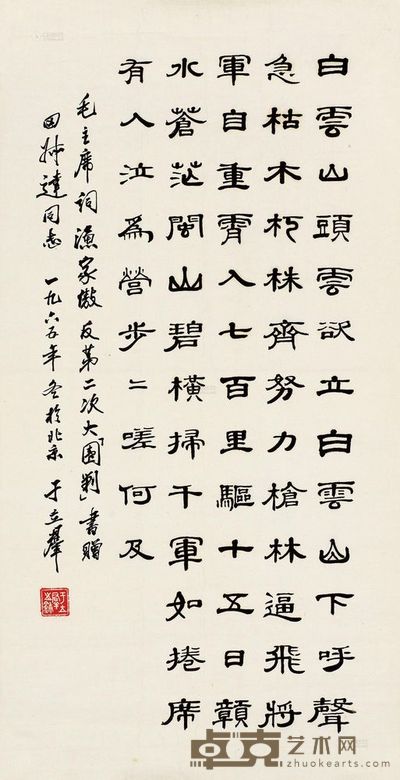 白雲山頭雲欲立白雲山下呼聲
急枯木朽株齊努力槍林逼飛將
軍自重霄入七百里驅十五日贛
水蒼茫閩山碧橫掃千軍如捲席
有人泣為營步〻嗟何及
毛主席詞漁家傲反第二次大「圍剿」書贈
田林達同志 一九六五年冬於北京 于立群
卓克艺术网
www.zhuokearts.com